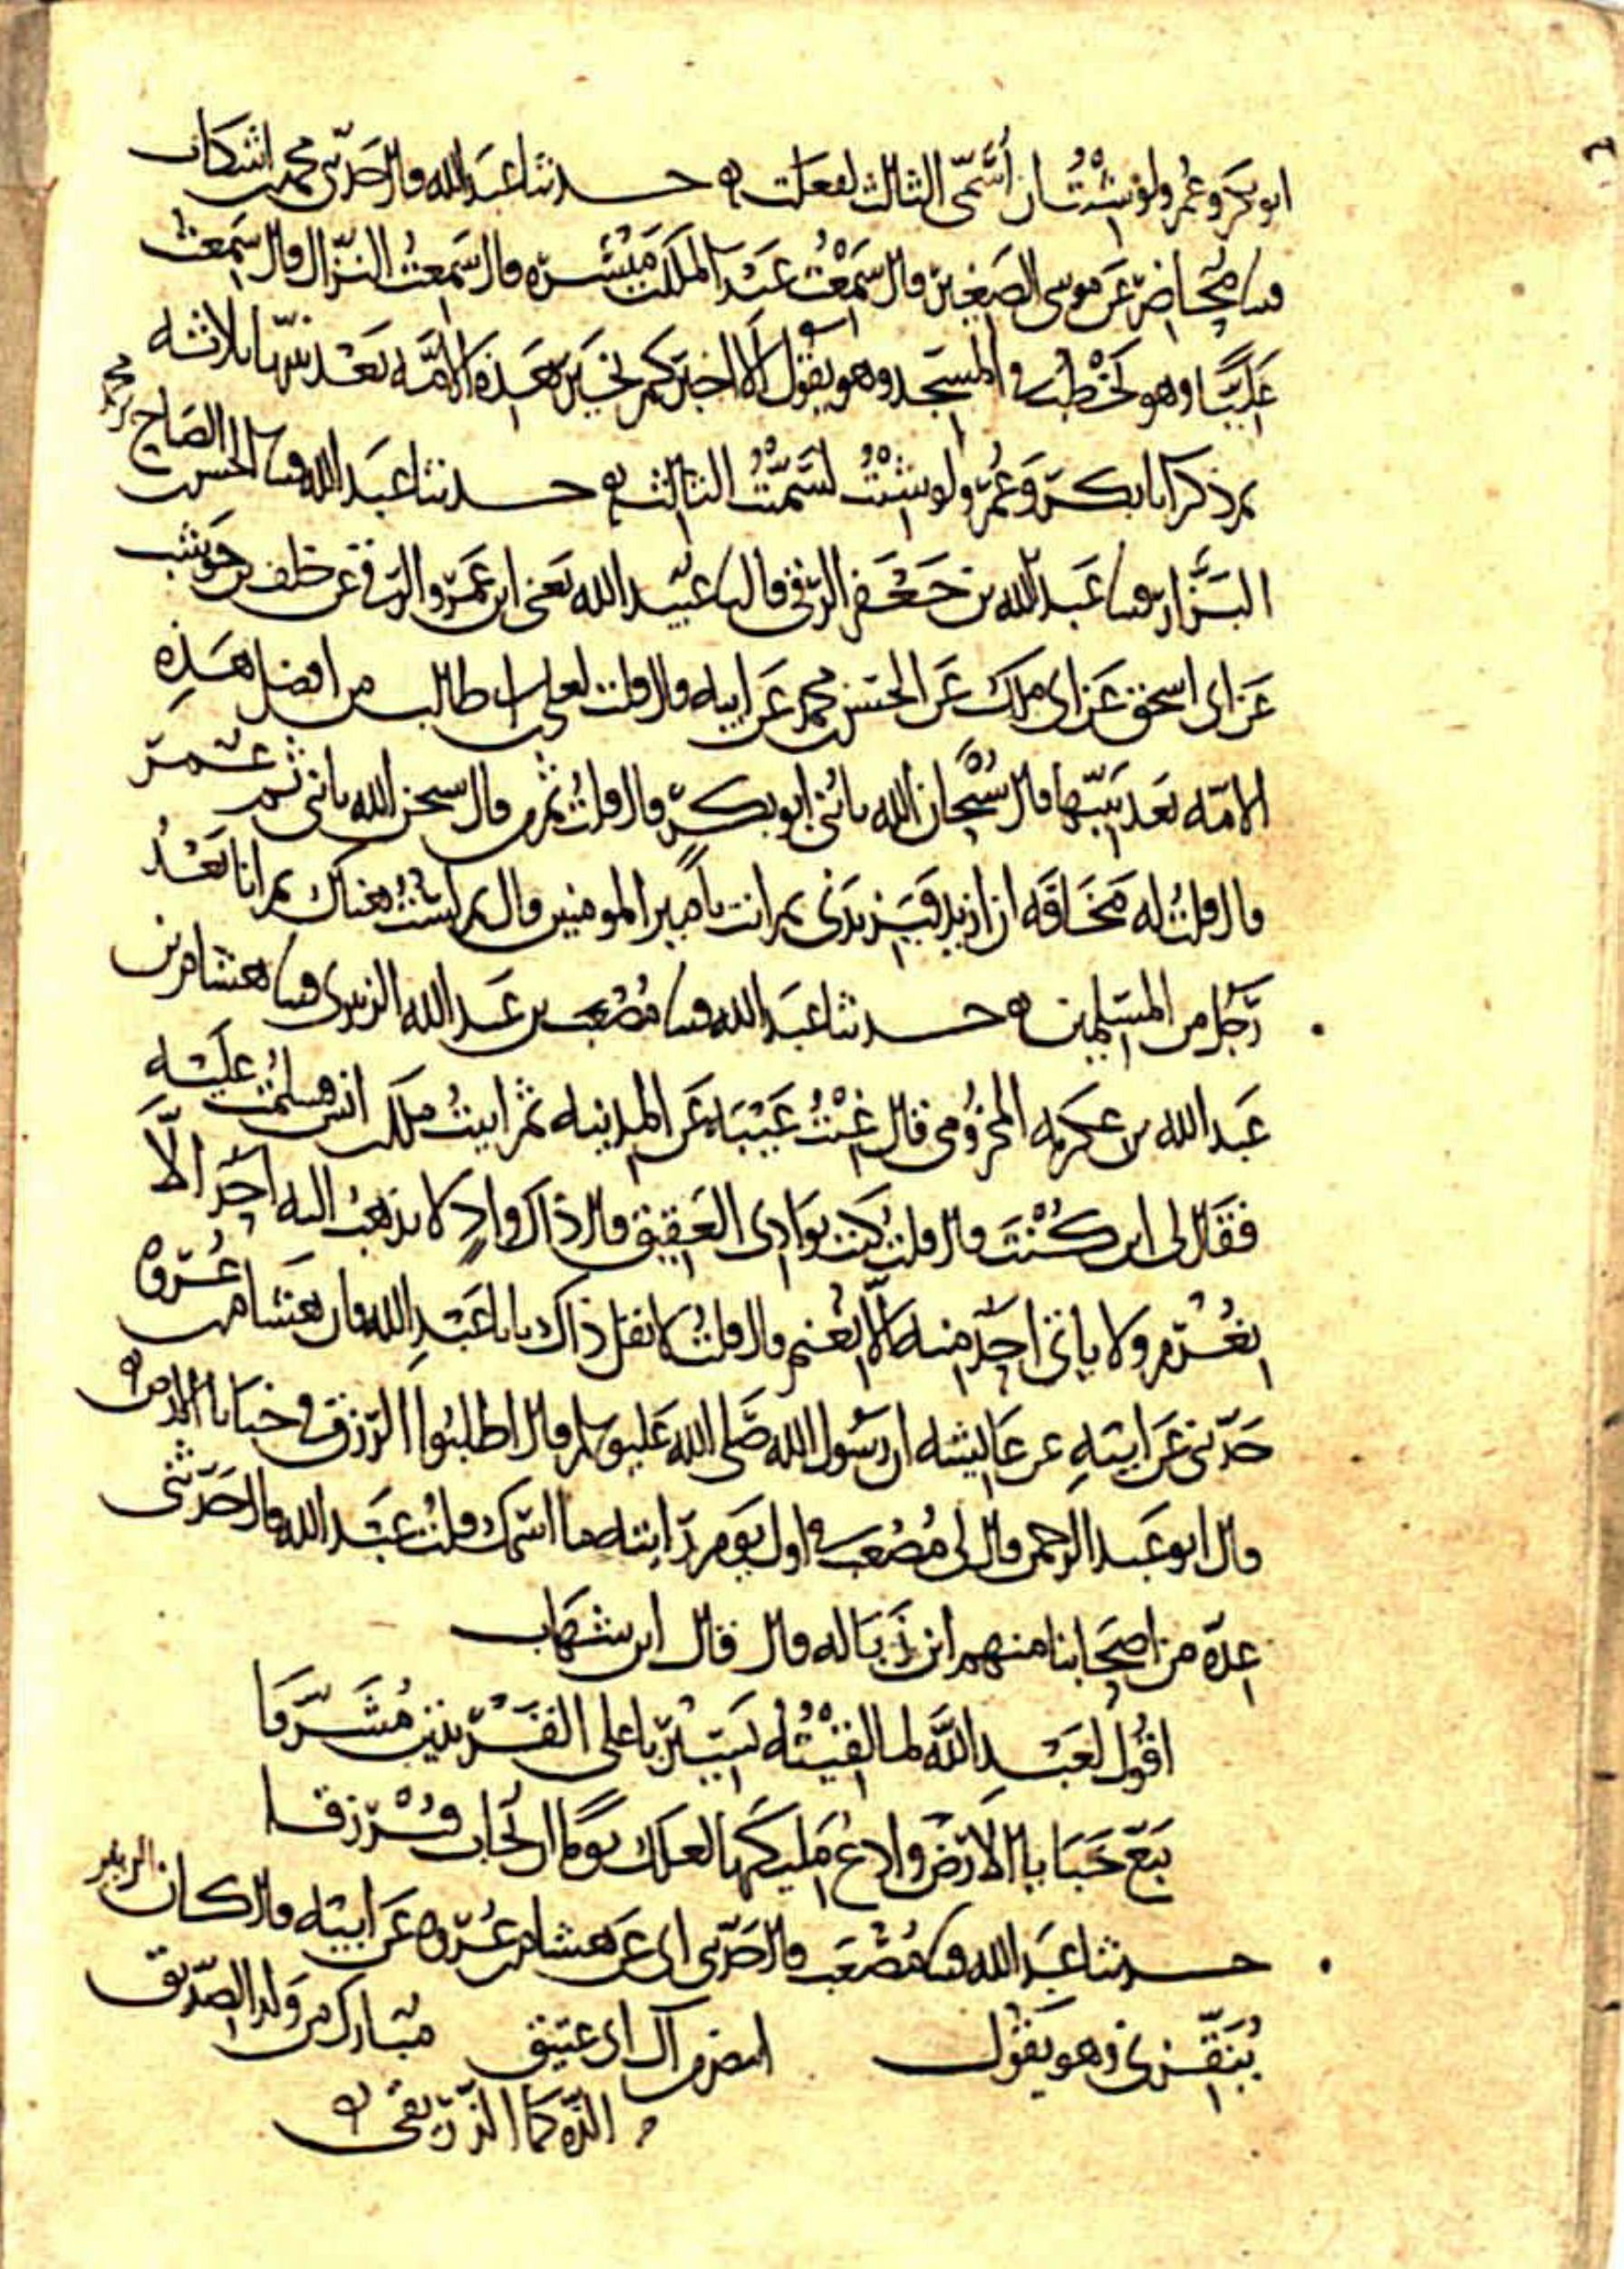 ابو بكر وعمر ولو شئت ان أسمّي الثالث لفعلت ه حدثنا عبد الله قال حدثني محمد بن اشكاب
محاضر عن موسى الصغير قال سمعت عبد الملك بن ميسره قال سمعت النزال قال سمعت
عليًا وهو يخطب في المسجد وهو يقول الا اخبركم بخير هذه الامّه بعد نبيّها ثلاثه
ثم ذكر ابا بكر وعُمر ولو شئت لسمّيت الثالث ه حدثنا عبد الله الحسن بن الصباح بن محمد
البزّار عبد الله بن جعفر الرقي قال عبيد الله يعني ابن عمرو الرقي عن خلف بن حوشب
عن ابي اسحق عن ابي ملك عن الحسن بن محمد عن ابيه قال قلت لعلي بن ابي طالب من افضل هذه
الامّه بعد نبيّها قال سُبحان الله يا بُني ابو بكر قال قلت ثم من قال سبحن الله يا بني ثم عمر
قال قلت له مخافه ان ازيد فيزيدني ثم انت يا امير المومنين قال ثم لستُ هناك ثم انا بعدُ
رجُل من المسلمين ه حدثنا عبد الله مُصْعب بن عبد الله الزبيري هشام بن
عبد الله بن عكرمه المخزومي قال غِبْتُ غيبه عن المدينه ثم اتيتُ ملك بن انس فسلمت عليه
فقال لي اين كُنْتَ قال قلت كنت بوادي العقيق قال ذاك وادٍ لا يذهب اليه احد الّا
بغُرْم ولا ياتي احد منه الّا بغُنم قال قلت لا تقل ذاك يا ابا عبدِ الله فان هشام بن عُروه
حدّثني عن ابيهِ عن عايشه ان رسُول الله صَلى الله عليه وسلم قال اطلبُوا الرزق في خبايا الارض ه
قال ابو عبد الرحمن قال لي مُصْعب في اول يوم رايته ما اسمك قلت عبد الله قال حدّثني
عدّة من اصحابنا منهم ابن زَبَاله قال قال ابن شهاب
اقُول لعبْدِ اللَّه لما لقيْتُه يسير باعلى القريتين مُشرّقا
تَتبّع خَبايا الارض وادعُ مليكها لعلك يومًا ان تُجاب فتُرزقا
حدثنا عبد الله مُصْعب قال حدّثني ابي عن هشام بن عُروه عن ابيه قال كان الزبير
يُنقّزني وهو يقول ابيض من آل ابي عتيق مبارك من ولد الصدّيق
الذه كما الذّ ريقي ه